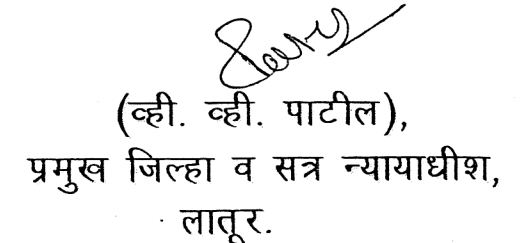 (व्ही. व्ही. पाटील),
प्रमुख जिल्हा व सत्र न्यायाधीश,
लातूर.